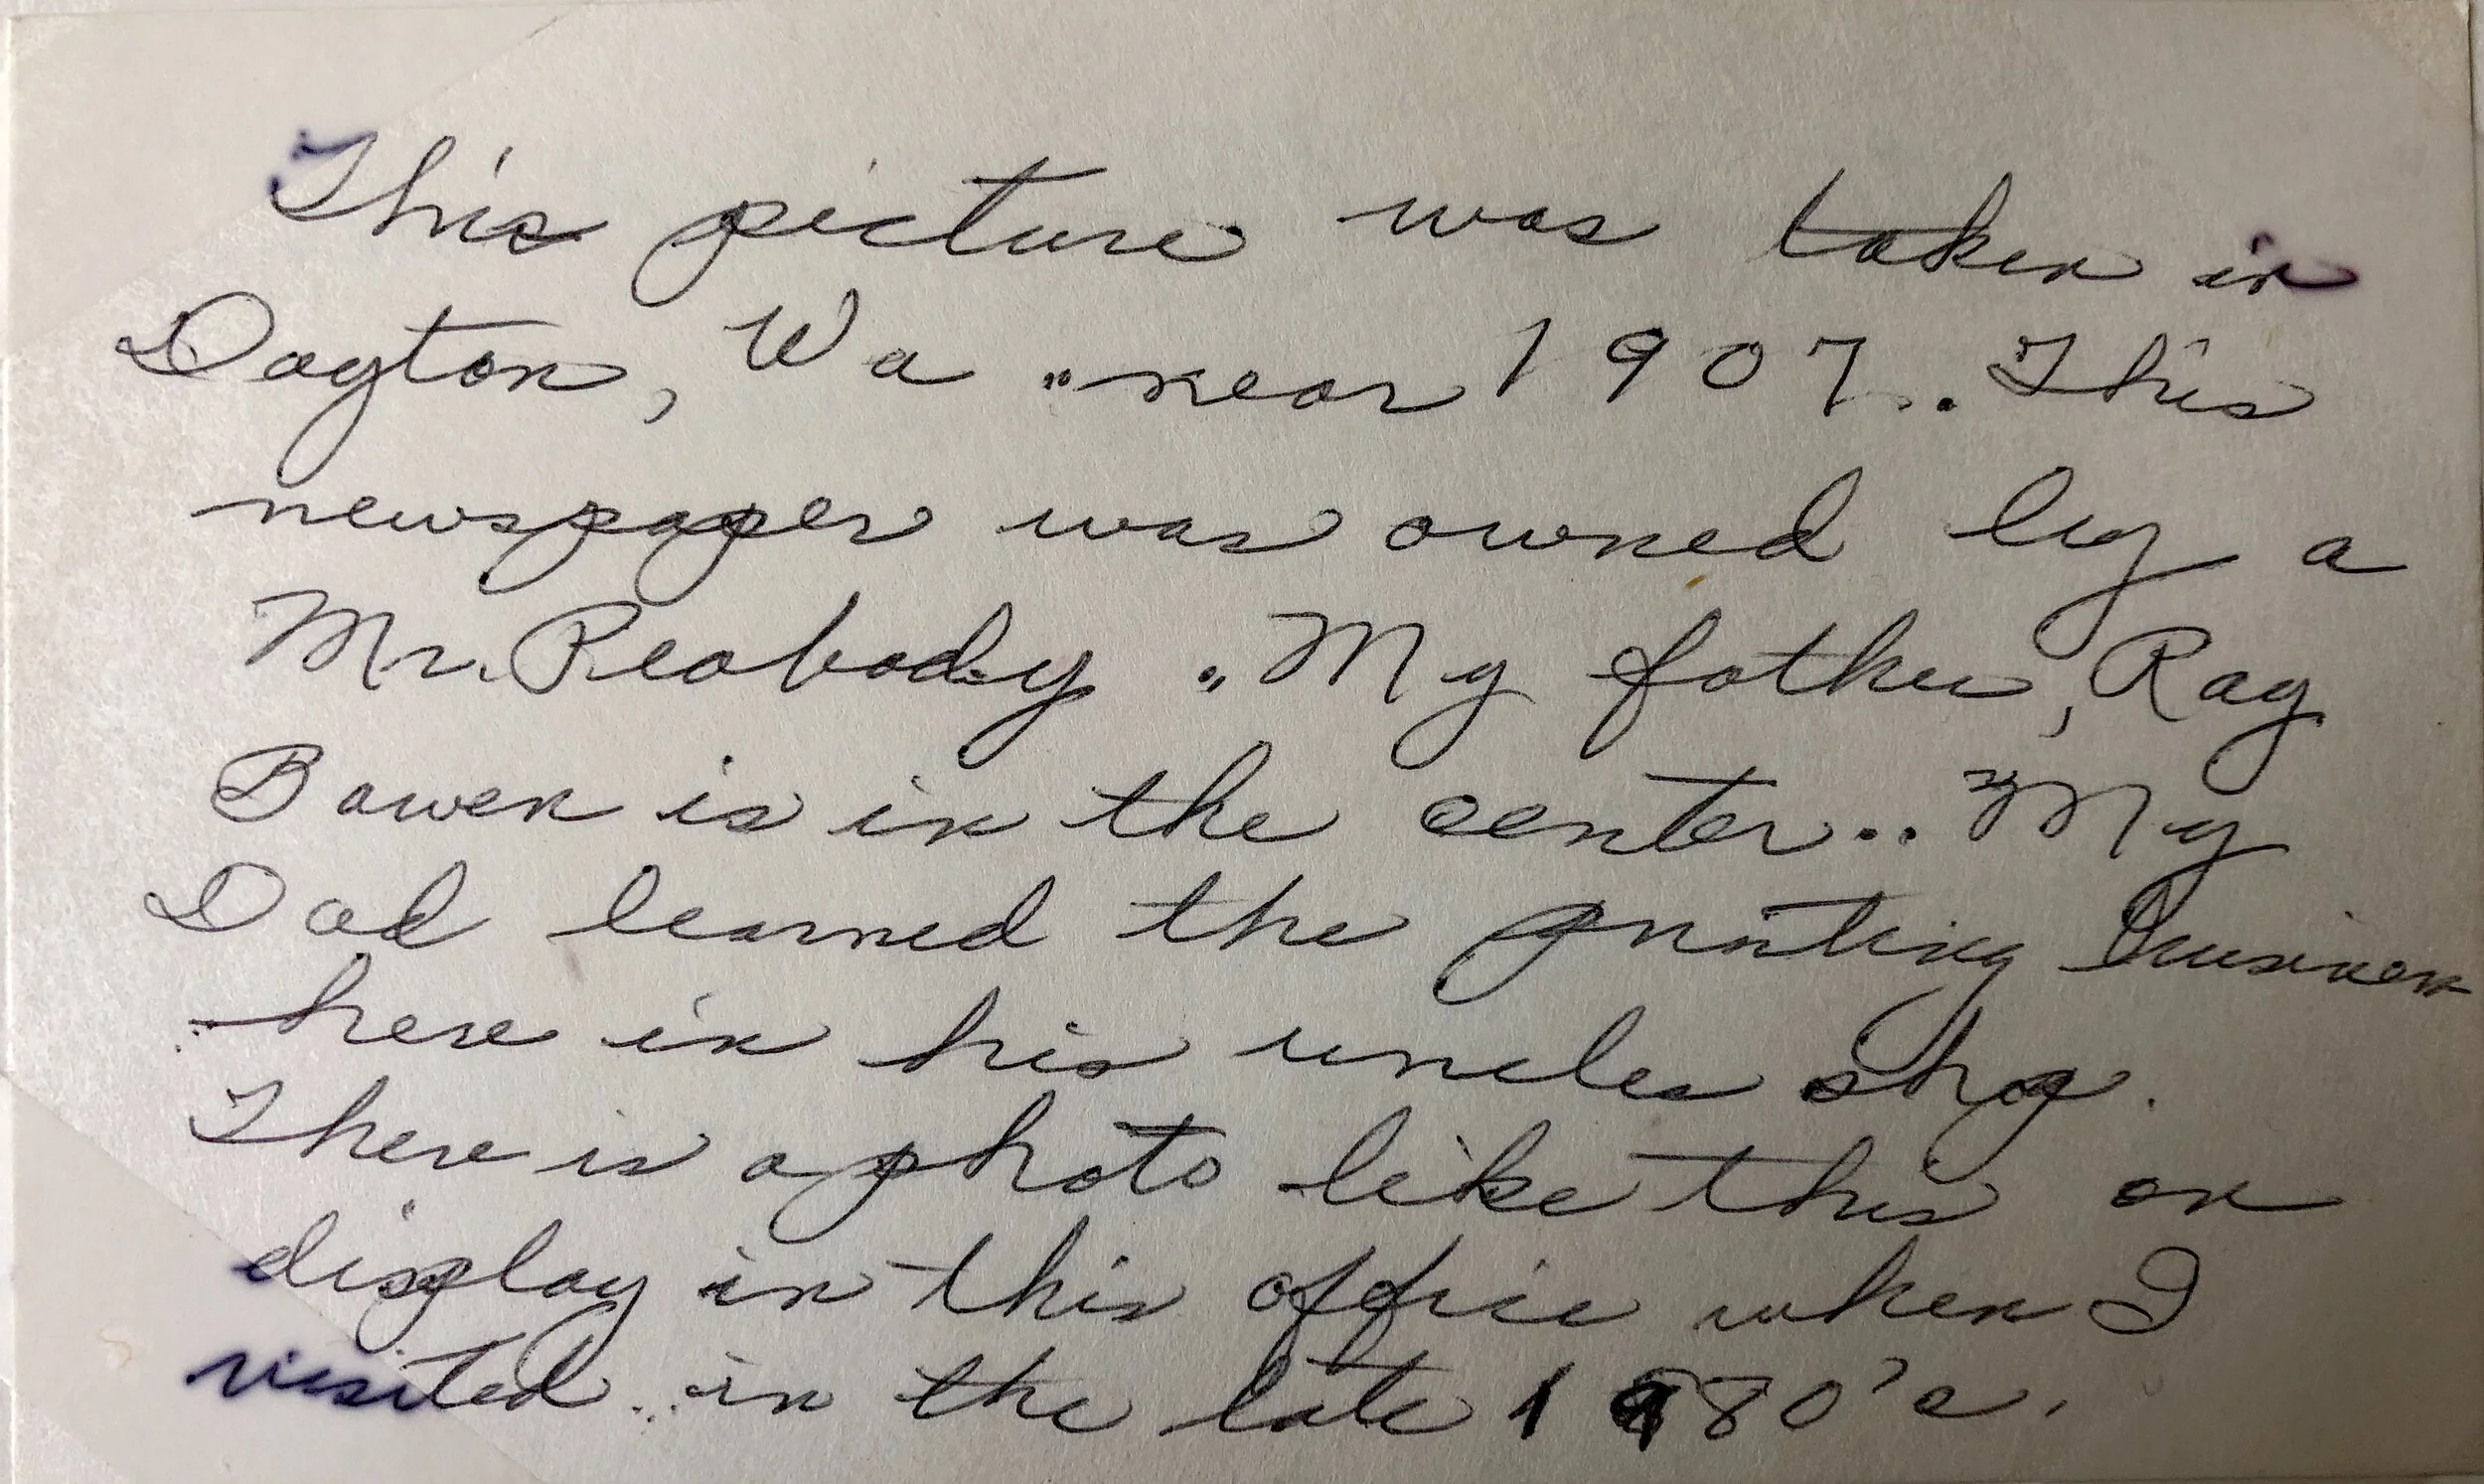 This picture was taken in
Dayton, Wa .. near 1907.. This
newspaper was owned by a
Mr. Peabody .. My father, Ray
Bowen is in the center.. My
Dad learned the printing business
here in his uncles shop.
There is a photo like this on
display in this office when I
visited .. in the late 1980's.